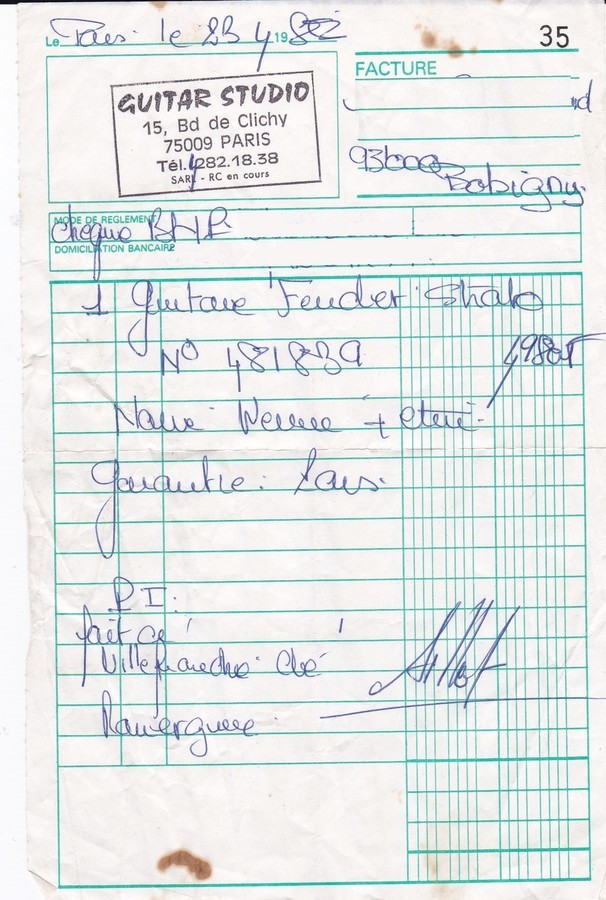 Le Paris le 23 4 1982
35
GUITAR STUDIO
15, Bd de Clichy
75009 PARIS
Tél. 282.18.38
SARL - RC en cours
FACTURE
93000 Bobigny
MODE DE REGLEMENT
Cheque BNP
DOMICILIATION BANCAIRE
1 Guitare Fender Strato
N° 481839
4980F
Naur Neuve + etui
Garantie: Sans
P I:
fait ce
Villefranche